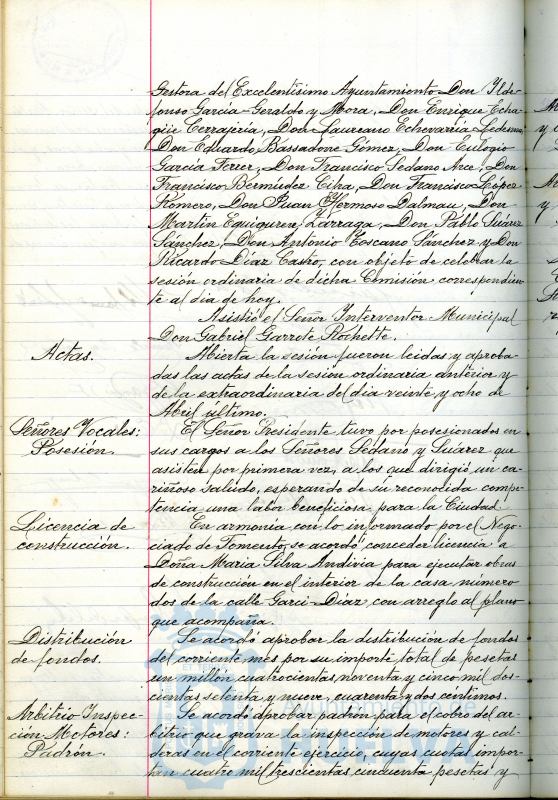 Gestora del Excelentísimo Ayuntamiento Don Ilde-
fonso García-Geraldo y Mora, Don Enrique Echa-
güe Cerrajería, Don Laureano Echevarría Ledesma
Don Eduardo Bassadone Gómez, Don Eulogio
García Ferrer, Don Francisco Sedano Arce, Don
Francisco Bermudez Ciha, Don Francisco López
Romero, Don Juan Hermoso Dalmau, Don
Martín Eguiguren Zarraga, Don Pablo Suárez
Sánchez, Don Antonio Toscano Sánchez y Don
Ricardo Díaz Castro, con objeto de celebrar la
sesión ordinaria de dicha Comisión correspondien-
te al dia de hoy.
Asistió el Señor Interventor Municipal
Don Gabriel Garrote Rochette.
Actas.
Abierta la sesión fueron leidas y aproba-
das las actas de la sesión ordinaria anterior y
de la extraordinaria del dia veinte y ocho de
Abril último.
Señores Vocales:
Posesión.
El Señor Presidente tuvo por posesionados en
sus cargos a los Señores Sedano y Suárez que
asisten por primera vez, a los que dirigió un ca-
riñoso saludo, esperando de su reconocida compe-
tencia una labor beneficiosa para la Ciudad
Licencia de
construcción.
En armonía con lo informado por el Nego-
ciado de Fomento, se acordó conceder licencia a
Doña Maria Silva Andivia para ejecutar obras
de construcción en el interior de la casa número
dos de la calle Garci-Díaz, con arreglo al plano
que acompaña.
Distribución
de fondos.
Se acordó aprobar la distribución de fondos
del corriente mes por su importe total de pesetas
un millón cuatrocientas noventa y cinco mil dos-
cientas setenta y nueve, cuarenta y dos céntimos.
Arbitrio Inspec-
ción Motores:
Padrón.
Se acordó aprobar padrón para el cobro del ar-
bitrio que grava la inspección de motores y cal-
deras en el corriente ejercicio, cuyas cuotas impor-
tan cuatro mil trescientas cincuenta pesetas y
Ayuntamiento de